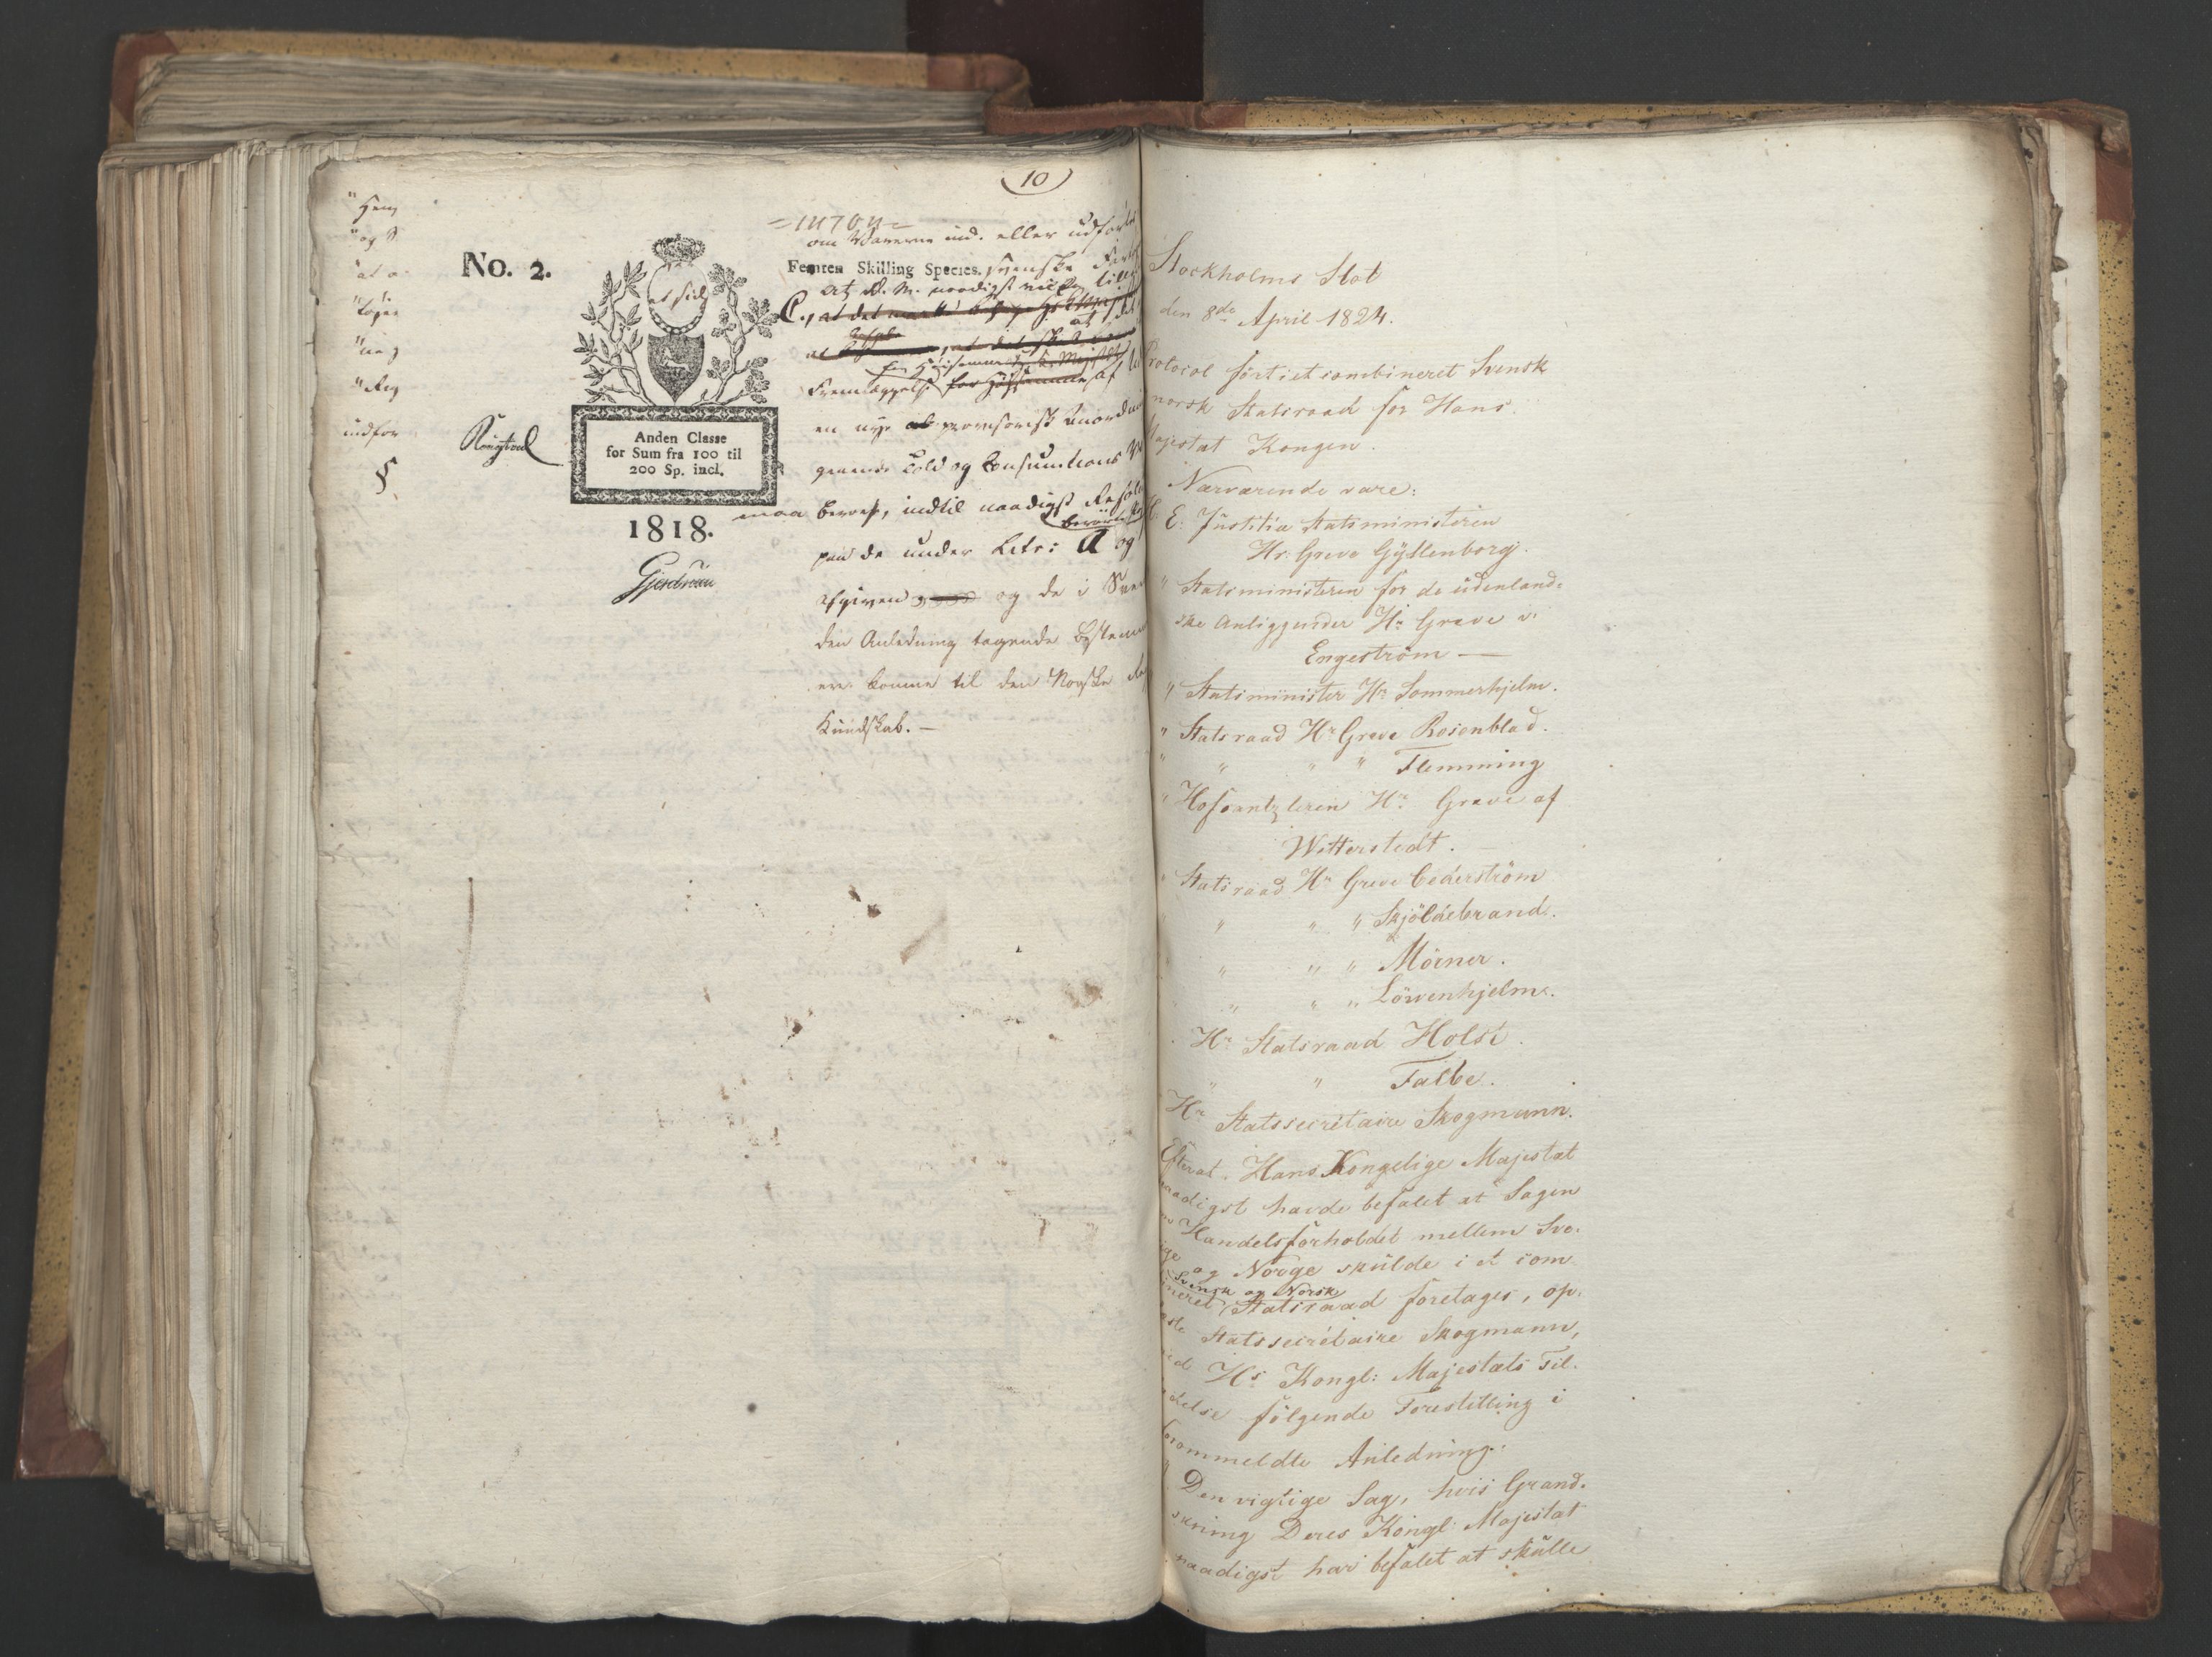 10
"Hen
"og
"at
No. 2.
om Varerne ind- eller udfør
Femten Skilling Species. svenske
at side
Anden Classe
for Sum fra 100 til
200 Sp. incl.
1818.
at H. M. naadigst vil
Fremlæggelse for af
en nye provisorisk Anord
gaaende Told og Consumtions
maa beroe, indtil naadigst Resol
paa de under Litr: A og
afgiven og de i Sve
den Anledning tagende Bestem
ere komne til den Norske
Kundskab. —
Stockholms Slot
den 8de April 1824.
Protocol fört i et combineret Svensk
norsk Statsraad for Hans
Majestæt Kongen.
Nærværende vare:
E. Justitia Statsministeren
Hr. Greve Gyllenborg.
" Statsministeren for de udenland-
ske Anliggender Hr Greve v.
Engeström —
" Statsminister Hr Sommerhjelm.
" Statsraad Hr Greve Rosenblad.
" " " " Flemming
" Hofcantzleren Hr Greve af
Wetterstedt.
" Statsraad Hr Greve Cederström
" " " Skjöldebrand.
" " " Mörner.
" " " Löwenhjelm.
Hr Statsraad Holst.
" " Falbe.
Hr Statssecretaire Skogmann.
Efterat Hans Kongelige Majestæt
naadigst havde befalet at Sagen
om Handelsforholdet mellem Sve-
rige og Norge skulde i et com-
Svensk og Norsk
bineret Statsraad foretages, op-
læste Statssecretaire Skogmann,
med Hs Kongl: Majestæts Til-
ladelse fölgende Forestilling i
forommeldte Anledning:
" Den vigtige Sag, hvis Grand-
skning Deres Kongl: Majestæt
naadigst har befalet at skulle